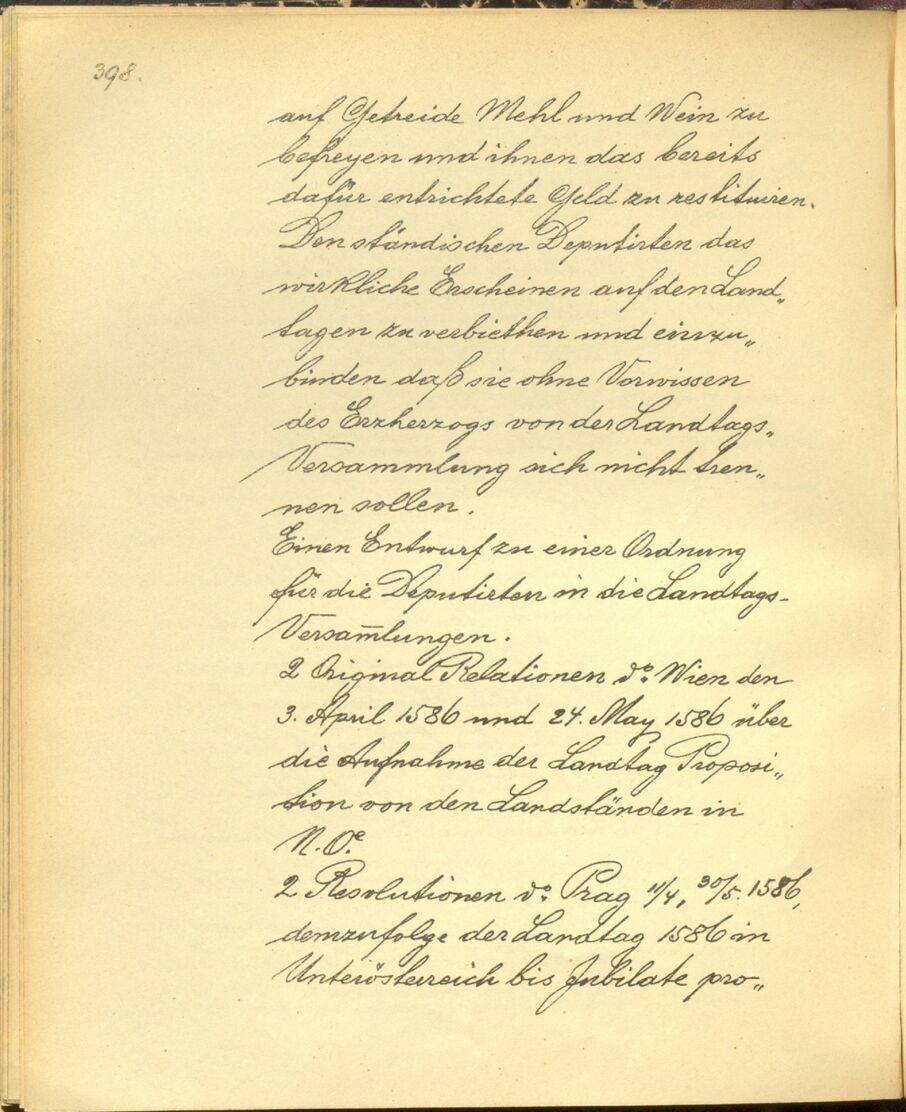 398.
auf Getreide Mehl und Wein zu
befreyen und ihnen das bereits
dafür entrichtete Geld zu restituiren.
Den ständischen Deputirten das
wirkliche Erscheinen auf den Land„
tagen zu verbiethen und einzu„
binden daß sie ohne Vorwissen
des Erzherzogs von der Landtags„
Versammlung sich nicht tren„
nen sollen.
Einen Entwurf zu einer Ordnung
für die Deputirten in die Landtags-
Versam̅lungen.
2 Original Relationen do. Wien den
3. April 1586 und 24. May 1586 über
die Aufnahme der Landtag Proposi„
tion von den Landständen in
N. Oe.
2 Resolutionen do. Prag 11/4, 30/5. 1586,
demzufolge der Landtag 1586 in
Unterösterreich bis Jubilate pro„